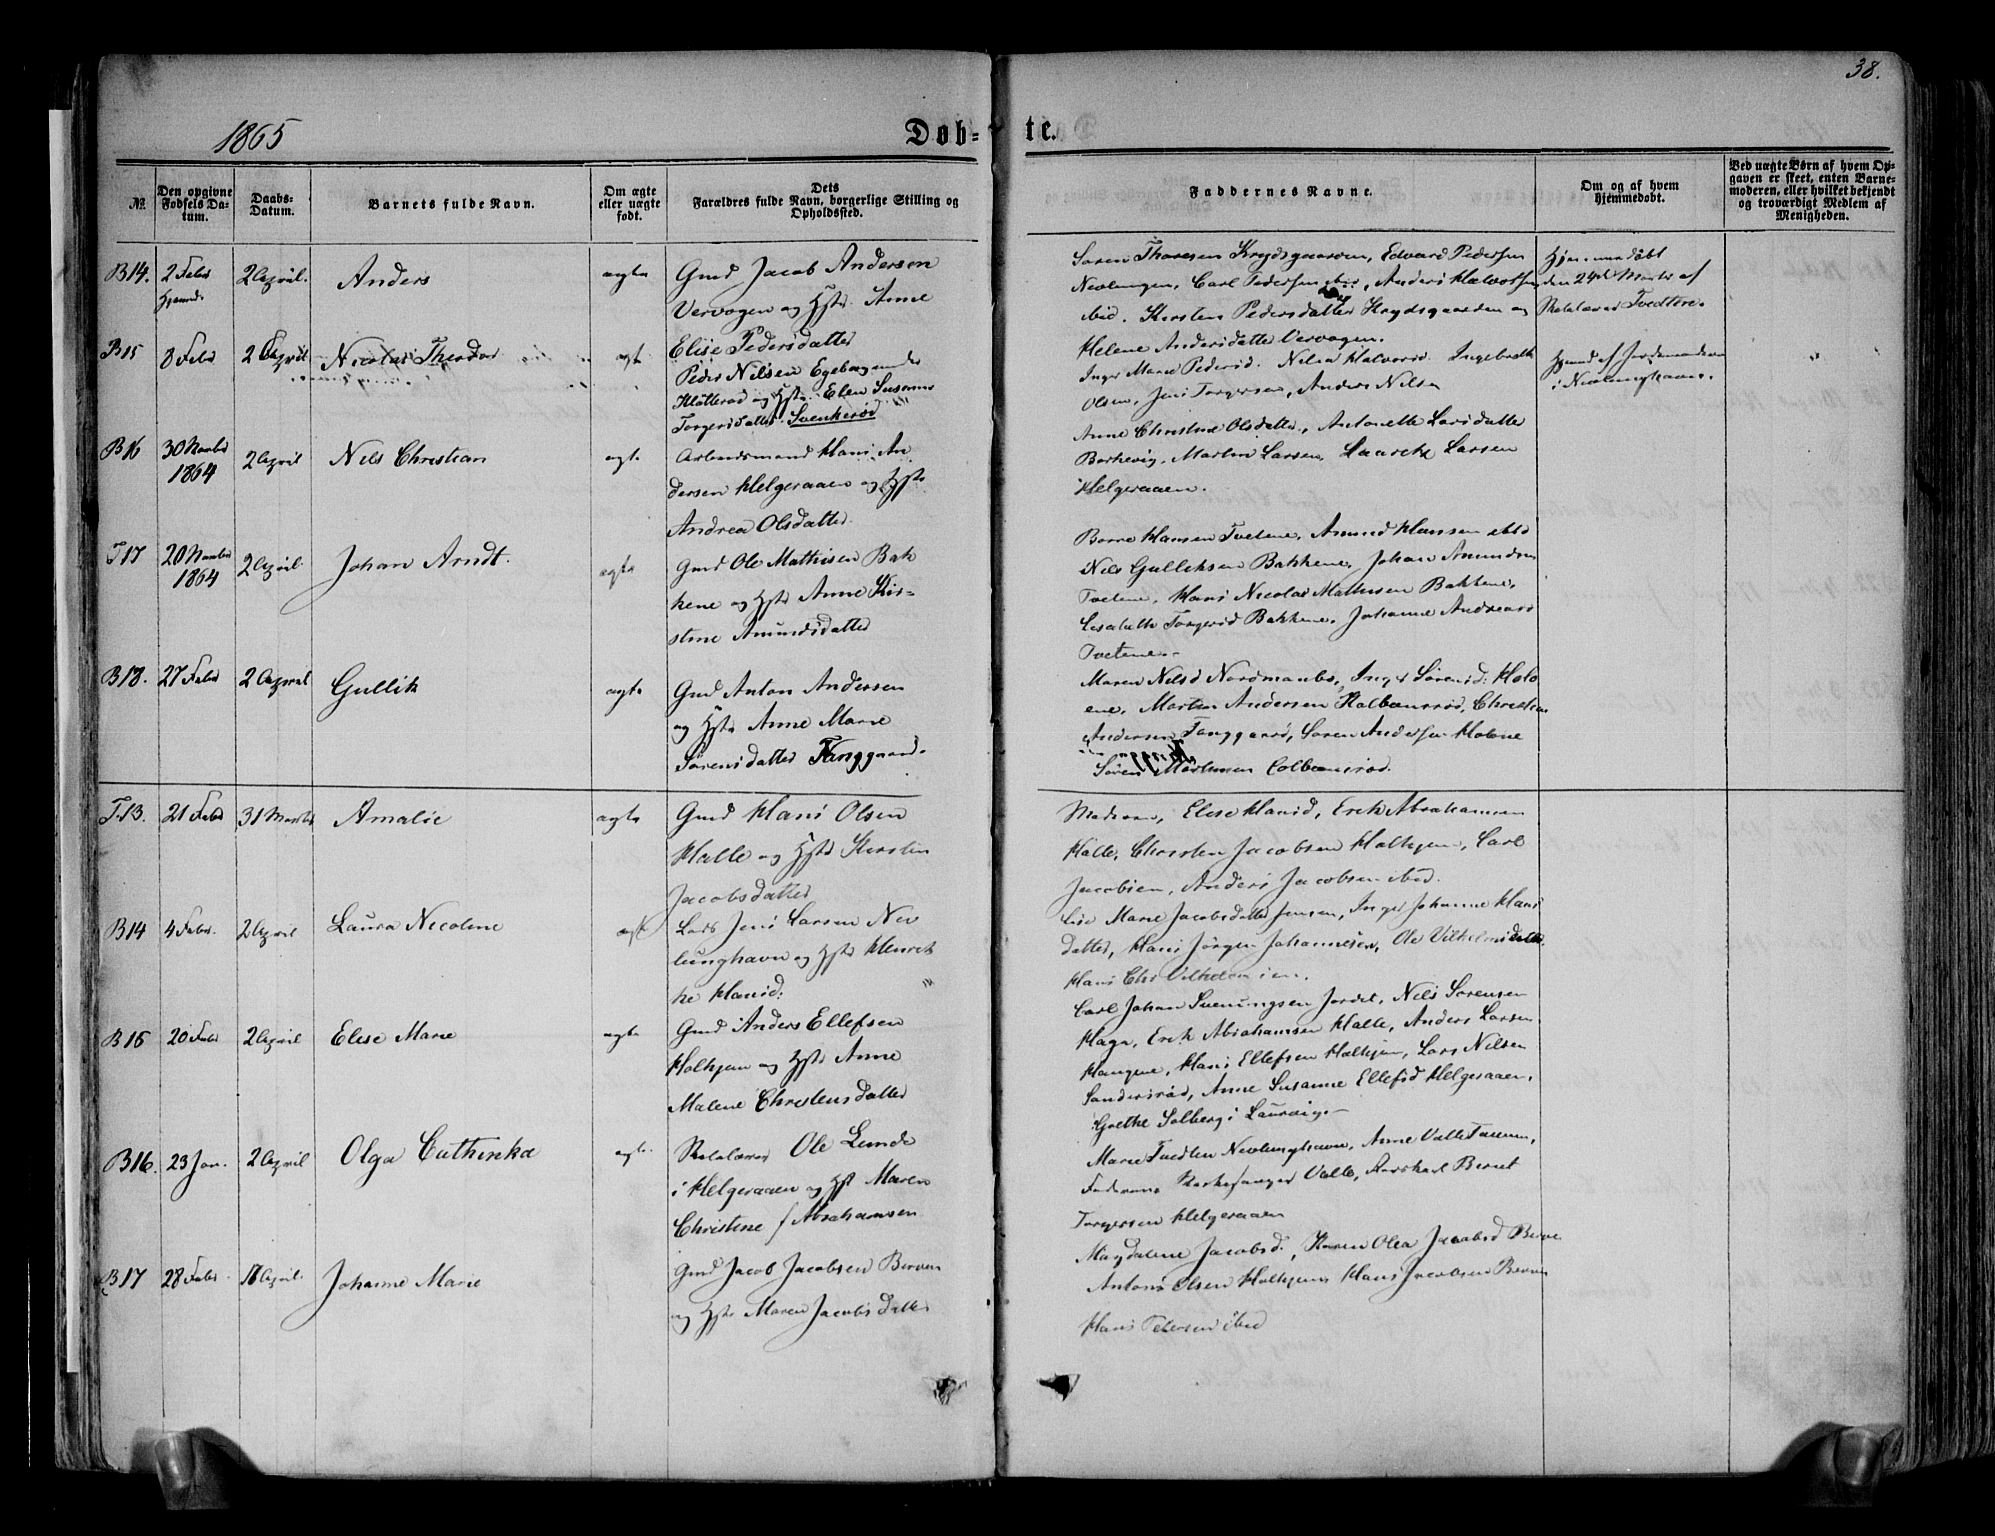 38.
1865
Døb-te.
№
Den opgivne Fødsels Datum.
Daabs-Datum.
Barnets fulde Navn.
Om ægte eller uægte født.
Dets Forældres fulde Navn, borgerlige Stilling og Opholdssted.
Faddernes Navne.
Om og af hvem hjemmedøbt.
Ved uægte Børn af hvem Opgaven er skeet, enten Barnemoderen, eller hvilket bekjendt og troværdigt Medlem af Menigheden.
B14. 2 Febr 2 April. Anders ægte
Gmd Jacob Andersen
Vervagen og Hst. Anne
Elise Pedersdatter
Søren Thoresen Krydsgaarden, Edvard Pedersen
Nevlungen, Carl Pedersen ibid, Anders Halvorsen
ibid. Kirsten Pedersdatter Krydsgaarden og
Helene Andersdatter Vervagen.
Hjemmedøbt
den 24de Marts af
Skolelærer Tvedten.
B15 8 Febr 2 April Nicolai Theodor ægt
Peder Nilsen Egebogende
Kløtterød og Hst. Elen Susanne
Torgersdatter. Svenkerød
Inger Marie Pedersd. Nilia Halvorsd. Ingebreth
Olsen, Jens Torgersen, Anders Nilsen
Hjemd af Jordemoderen
i Nevlunghavn.
B16 30 Novbr 1864 2 April Nils Christian ægt
Arbeidsmand Hans An
dersen Helgeraaen og Hst
Andrea Olsdatter
Anne Christine Olsdatter, Antonette Larsdatter
Barkevig, Martin Larsen, Laurits Larsen
Helgeraaen.
T17 20 Novbr 1864 2 April Johan Arndt. ægte
Gmd Ole Mathisen Bak
kene og Hst Anne Kir-
stine Amundsdatter
Borre Hansen Tvetene, Amund Hansen ibid
Nils Gulliksen Bakkene, Johan Amundsen
Tvetene, Hans Nicolai Mathisen Bakkene,
Lisabeth Torgersd Bakkene, Johanne Andreasd
Tvetene.-
B18. 27 Febr 2 April Gullik ægte
Gmd Anton Andersen
og Hst Anne Marie
Sørensdatter Fanggaard.
Maren Nilsd Nordmanbs., Inger Sørensd: Holo
ene, Martin Andersen Kolbeinsrød, Christian
Andersen Fanggarø, Søren Andersen Holene
Søren Mathisen Colbeinsrød.
T.13. 21 Febr 31 Marts Amalie ægte
Gmd Hans Olsen
Halle og Hst Kirsten
Jacobsdatter
Moderen, Elise Hansd, Erik Abrahamsen
Halle, Christen Jacobsen Halhjem, Carl
Jacobsen, Anders Jacobsen ibid.
B14 4 Febr. 2 April Laura Nicoline ægt
Lods Jens Larsen Nev
lunghavn og Hst Henrik
ke Hansd:
Lise Marie Jacobsdatter Jensen, Inger Johanne Hans
datter, Hans Jørgen Johannesen, Ole Vilhelmsdatter
Hans Chr Vilhelmsen.
B15 20 Febr 2 April Elise Marie ægte
Gmd Anders Ellefsen
Halhjem og Hst Anne
Malene Christensdatter
Carl Johan Svenungsen Jordet, Nils Sørensen
Haga, Erik Abrahamsen Halle, Anders Larsen
Haugene, Hans Ellefsen Halhjem, Lars Nilsen
Sandersrød, Anne Susanne Ellefsd Helgeraaen,
Grethe Solberg i Laurvig.-
B16. 23 Jan. 2 April Olga Cathinka ægte
Skolelærer Ole Lunde
i Helgeraaen og Hst Maren
Christine f Abrahamsen
Marie Tvedten Nevlunghavn, Anne Valle Taanum,
Faderen, Kirkesanger Valle, Bernt
Torgersen Helgeraaen
B17 28 Febr. April Johanne Marie
Gmd Jacob Jacobsen Berven
og Hst Maren Jacobsdatter
Magdalene Jacobsd., Karen Olea Jacobsd Berve
Antoni Olsen Halhjem, Hans Jacobsen Berven
Hans Petersen ibid